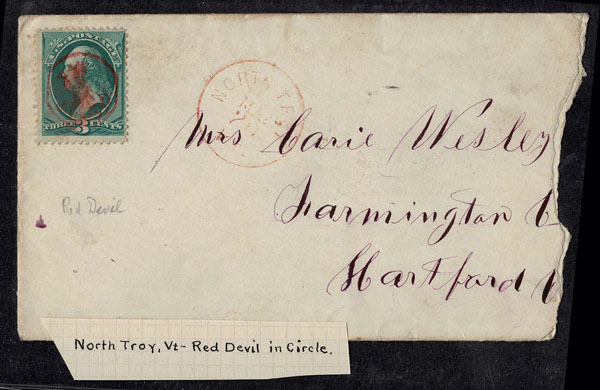 U.S. POSTAGE
THREE 3 CENTS
NORTH TROY
Mrs Carie Wesley
Farmington
Hartford
Red Devil
North Troy, Vt - Red Devil in Circle.